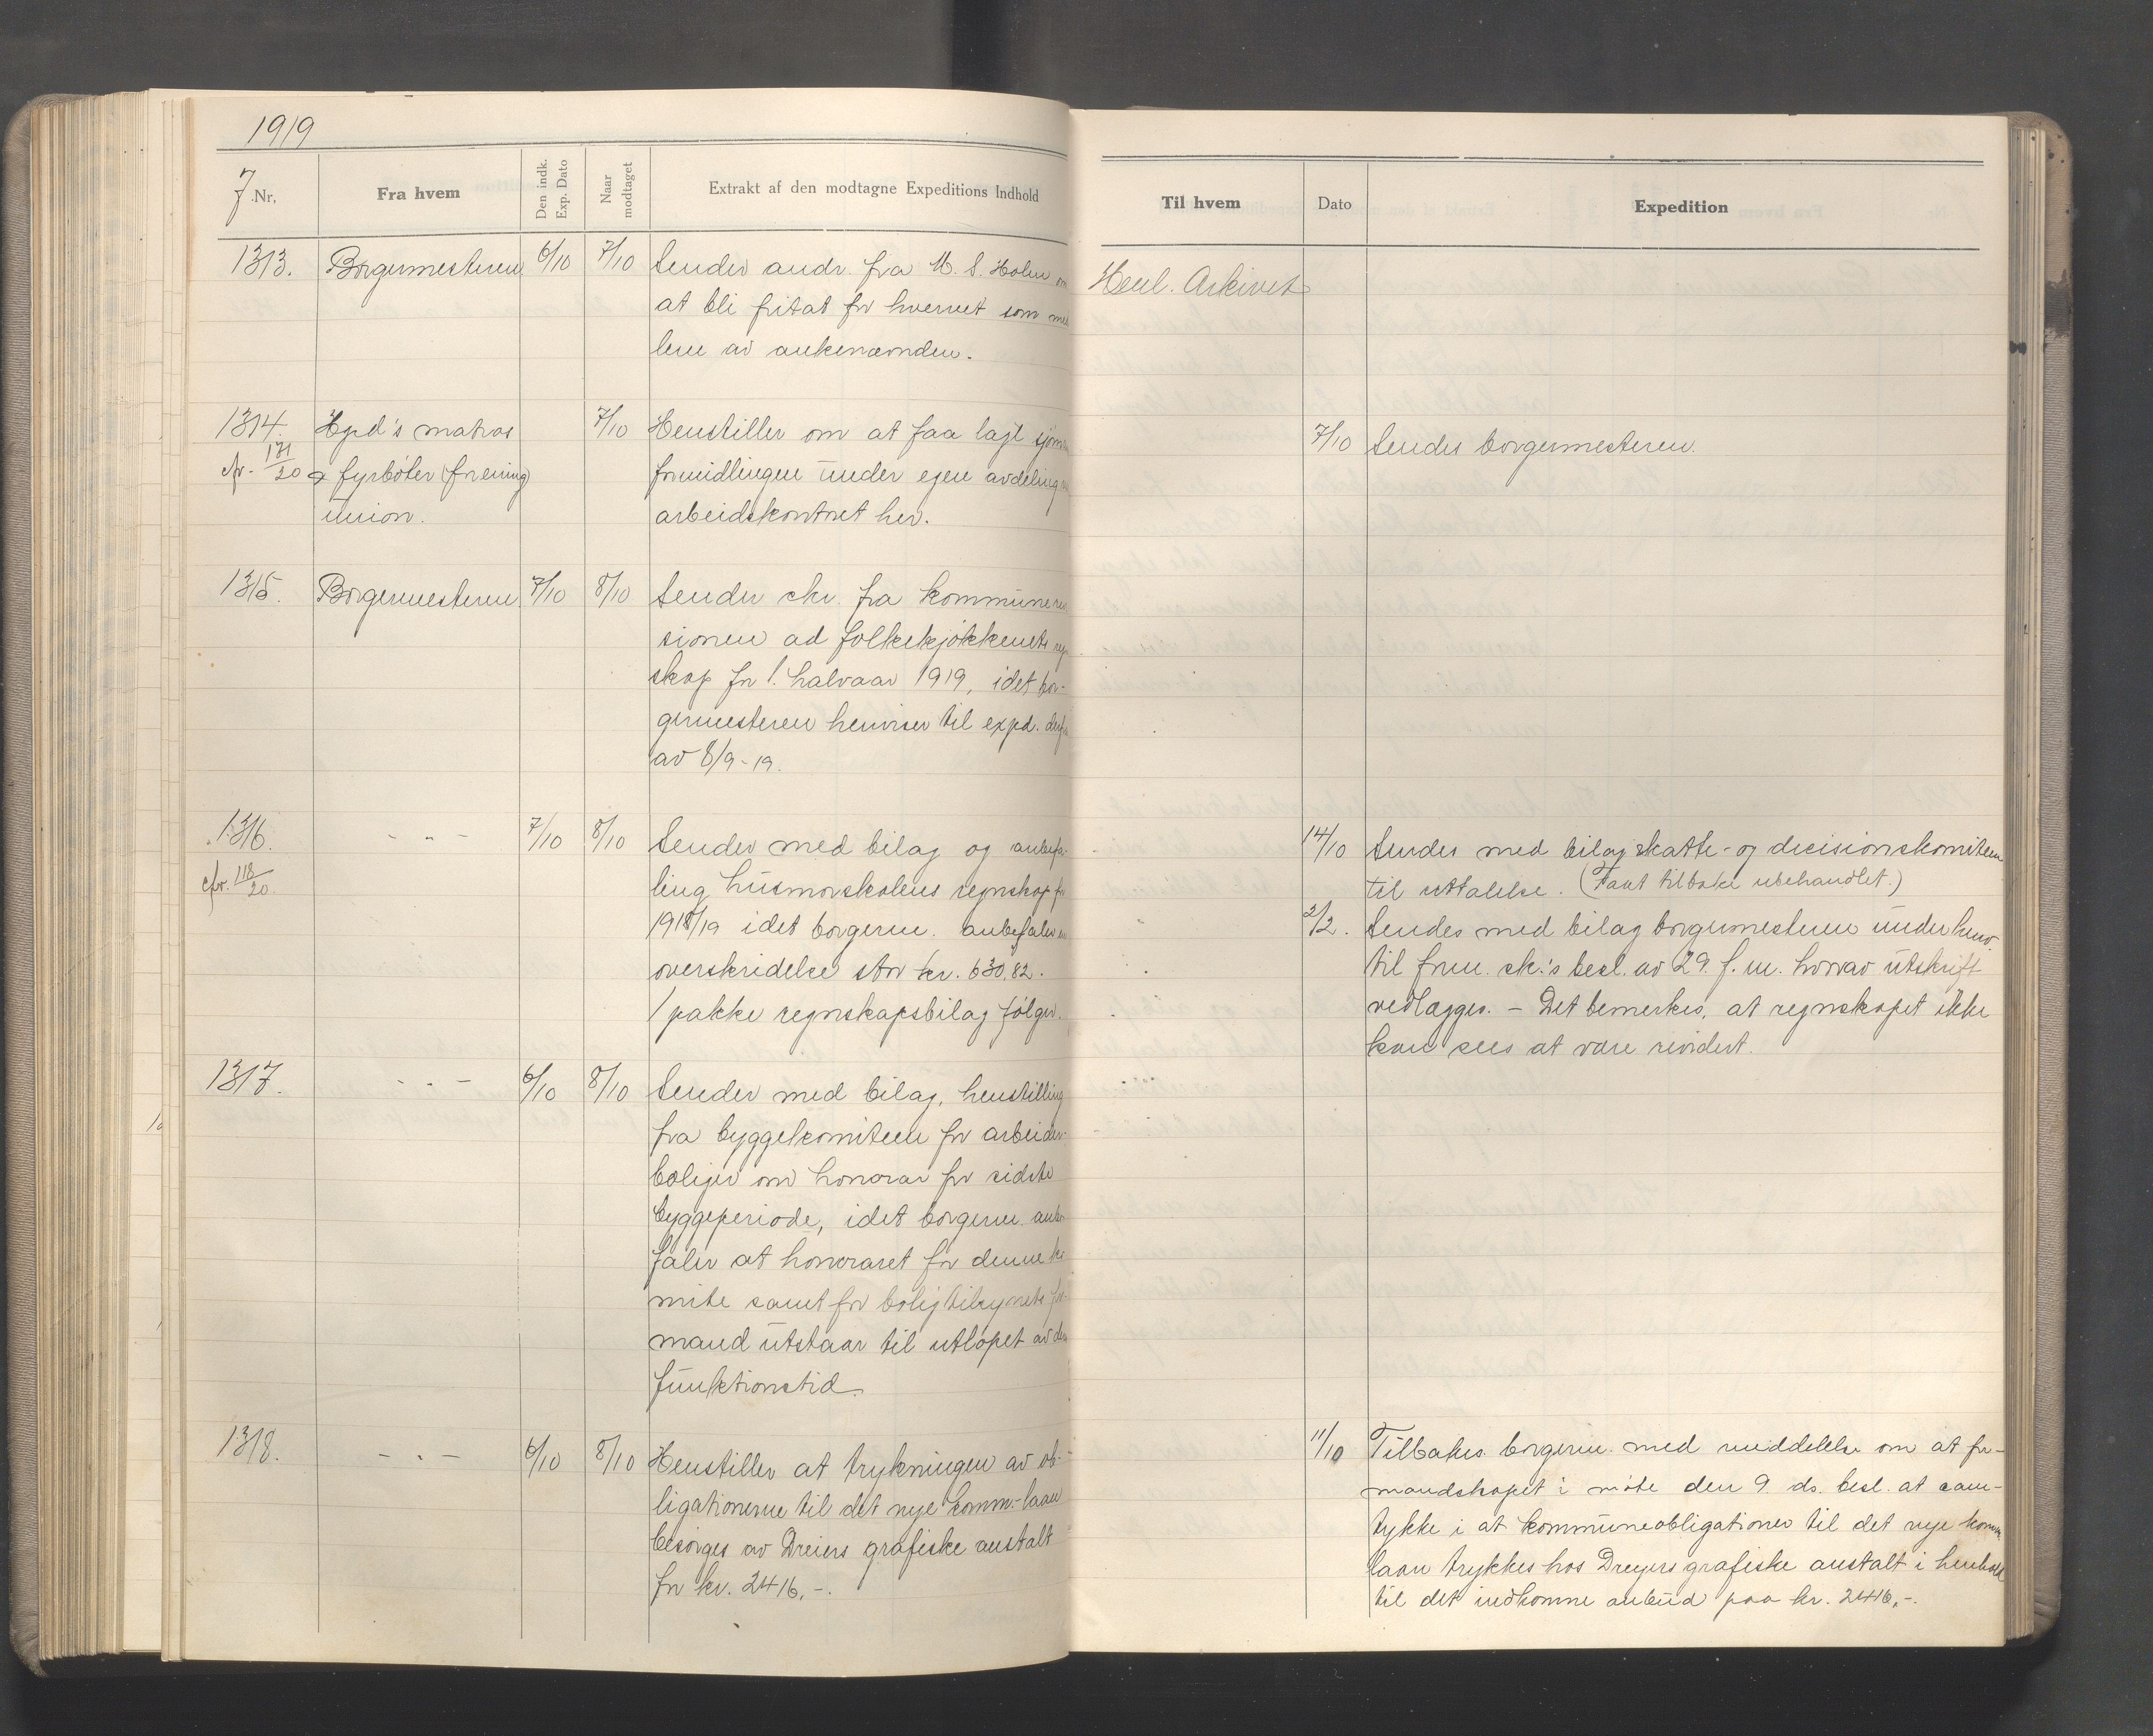 1919
J.Nr,
Fra hvem
Den indk. Exp. Dato
Naar modtaget
Extrakt af den modtagne Expeditions Indhold
Til hvem
Dato
Expedition
1313. Borgermesteren 6/10 7/10 Sender andr. fra M. S. Holm om
at bli fritat for hvervet som med
lem av ankenævnden.
Henl. Arkivet
1314. Hgsd's matros 7/10 Henstiller om at faa lagt sjømands
cfr. 171/20 & fyrbøter (forening) formidlingen under egen avdeling
union. arbeidskontoret her.
7/10 Sendes borgermesteren.
1315. Borgermesteren 7/10 8/10 Sender skr. fra kommunerevi
sionen ad folkekjøkkenets regn
skap for 1. halvaar 1919, idet bor-
germesteren henviser til expd. derfra
av 8/9-19.
1316. - " - 7/10 8/10 Sender med bilag og anbefa-
cfr. 118/20. ling husmorskolens regnskap for
1918/19 idet borgerm. anbefaler en
overskridelse stor kr. 630.82.
1 pakke regnskapsbilag følger.
14/10 Sendes med bilag skatte- og decisionskomiteen
til uttalelse. (Faat tilbake ubehandlet.)
2/2. Sendes med bilag borgermesteren under henv.
til form. sk.'s besl. av 29. f. m. hvorav utskrift
vedlægges. – Det bemerkes, at regnskapet ikke
kan sees at være revidert.
1317. - " - 6/10 8/10 Sender med bilag, henstilling
fra byggekomiteen for arbeider-
boliger om honorar for sidste
byggeperiode, idet borgerm. anbe
faler at honoraret for denne ko
mite samt for boligtilsynets for-
mand utstaar til utløpet av den
funktionstid.
1318. - " - 6/10 8/10 Henstiller at trykningen av ob-
ligationerne til det nye komm.-laan
besørges av Dreiers grafiske anstalt
for kr. 2416,-.
11/10 Tilbakes. borgerm. med meddelelse om at for-
mandskapet i møte den 9. ds. besl. at sam-
tykke i at kommuneobligationer til det nye komm.
laan trykkes hos Dreyers grafiske anstalt i henhold
til det indkomne anbud paa kr. 2416,-.